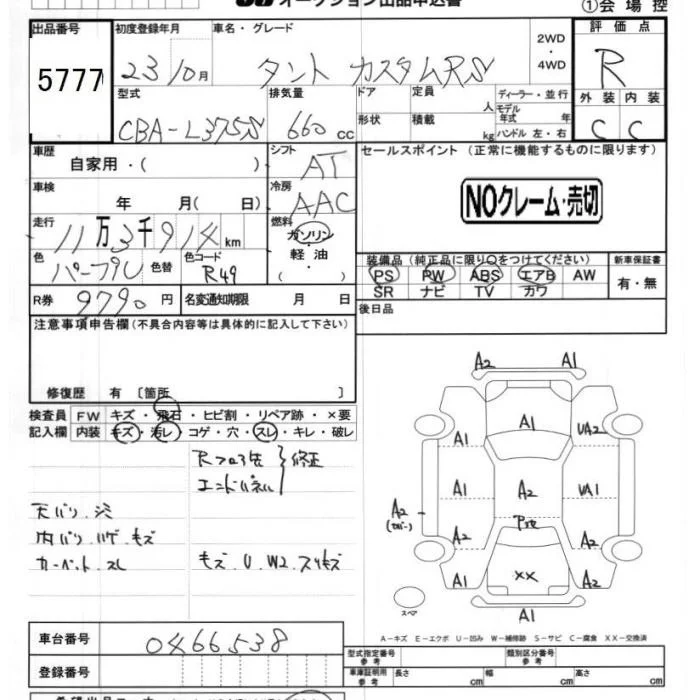 オークション出品申込書
①会場控
出品番号 初度登録年月 車名・グレード 2WD・4WD 評価点
5777 23/10月 タント カスタムRS R
型式 排気量 ドア 定員 人 ディーラー・並行 外装 内装
CBA-L375S 660cc 形状 積載 kg モデル年式 年 ハンドル 左・右 C C
車歴 自家用・( ) シフト AT セールスポイント (正常に機能するものに限ります)
車検 年 月( 日) 冷房 AAC NOクレーム・売切
走行 11万3千914km 燃料 ガソリン・軽油・( )
色 パープル 色替 色コード R49
装備品(純正品に限り○をつけてください) 新車保証書
PS PW ABS エアB AW 有・無
SR ナビ TV カワ
R券 9790円 名変通知期限 月 日 後日品
注意事項申告欄(不具合内容等は具体的に記入して下さい)
修復歴 有 〔箇所 〕
検査員 FW キズ・飛石・ヒビ割・リペア跡・×要
記入欄 内装 キズ・汚レ・コゲ・穴・スレ・キレ・破レ
Rフロア先
エンドパネル
修正
天バリ、シミ
内バリ、ハゲ、キズ
カーペット、スレ
キズ、U、W2、スリキズ
A2 A1
A1
A1 UA2
A1 A2 UA1
A2
A2 A2
A1 XX A1
スペア A1
A-キズ E-エクボ U-凹み W-補修跡 S-サビ C-腐食 XX-交換済
車台番号 0466538
型式指定番号 参考 類別区分番号 参考
登録番号 車庫証明用 参考 長さ cm 幅 cm 高さ cm